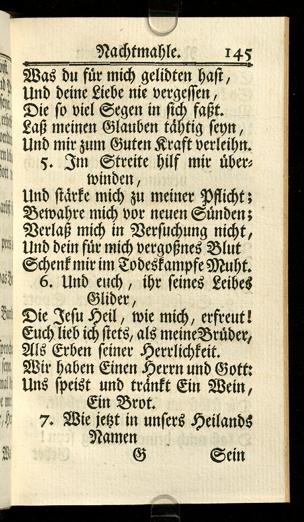 Nachtmahle. 145
Was du für mich gelidten hast,
Und deine Liebe nie vergessen,
Die so viel Segen in sich faßt.
Laß meinen Glauben tähtig seyn,
Und mir zum Guten Kraft verleihn.
5. Im Streite hilf mir über-
winden,
Und stärke mich zu meiner Pflicht;
Bewahre mich vor neuen Sünden;
Verlaß mich in Versuchung nicht,
Und dein für mich vergoßnes Blut
Schenk mir im Todeskampfe Muht.
6. Und euch, ihr seines Leibes
Glider,
Die Jesu Heil, wie mich, erfreut!
Euch lieb ich stets, als meine Brüder,
Als Erben seiner Herrlichkeit.
Wir haben Einen Herrn und Gott:
Uns speist und tränkt Ein Wein,
Ein Brot.
7. Wie jetzt in unsers Heilands
Namen
G Sein